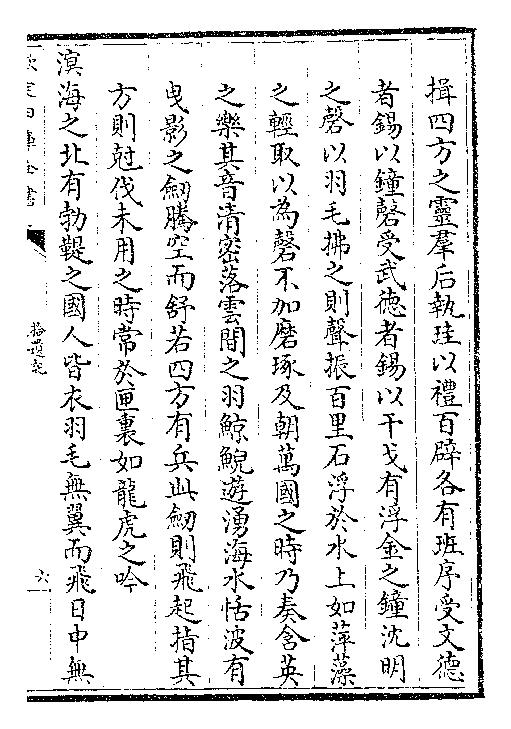 揖四方之靈羣后執珪以禮百辟各有班序受文德
者錫以鐘磬受武德者錫以干戈有浮金之鐘沈明
之磬以羽毛拂之則聲振百里石浮於水上如萍藻
之輕取以為磬不加磨琢及朝萬國之時乃奏含英
之樂其音清密落雲間之羽鯨鯢遊湧海水恬波有
曳影之劒騰空而舒若四方有兵此劒則飛起指其
方則尅伐未用之時常於匣裏如龍虎之吟
溟海之北有勃鞮之國人皆衣羽毛無翼而飛日中無
欽定四庫全書
拾遺記
六